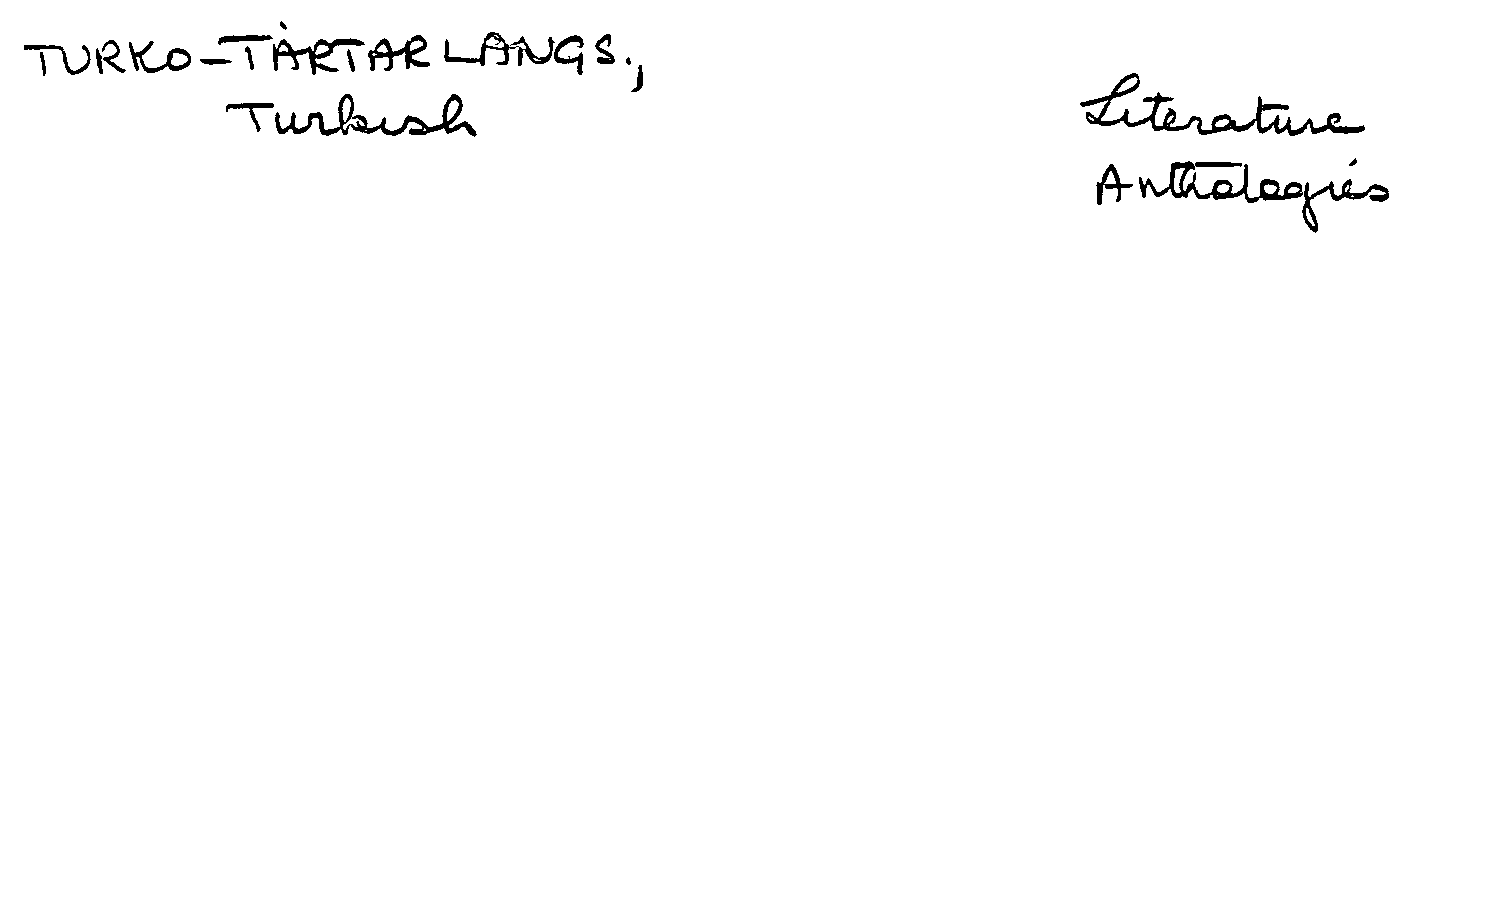 TURKO-TARTAR LANGS.,
Turkish
Literature
Anthologies